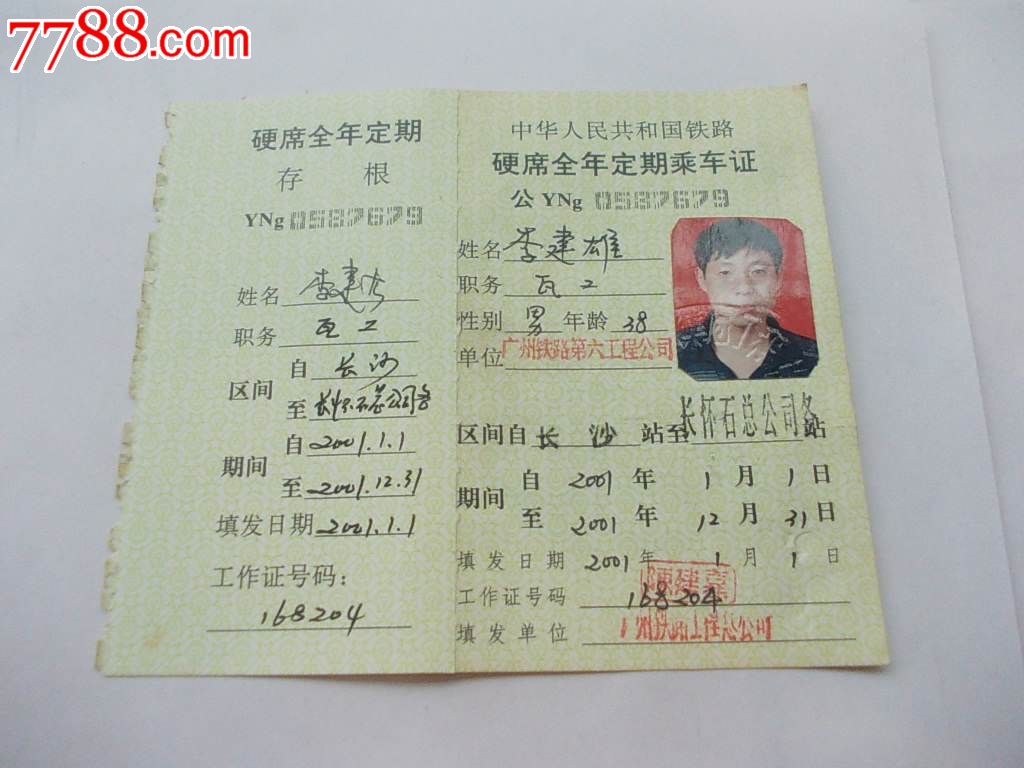 7788.com
硬席全年定期
存 根
YNg 0587679
姓名 李建雄
职务 瓦工
区间 自 长沙
至 长怀石总公司各
期间 自 2001.1.1
至 2001.12.31
填发日期 2001.1.1
工作证号码：
168204
中华人民共和国铁路
硬席全年定期乘车证
公 YNg 0587679
姓名 李建雄
职务 瓦工
性别 男 年龄 38
单位 广州铁路第六工程公司
区间自 长沙 站至 长怀石总公司各站
期间 自 2001 年 1 月 1 日
至 2001 年 12 月 31 日
填发日期 2001 年 1 月 1 日
工作证号码 168204
填发单位 广州铁路工程总公司